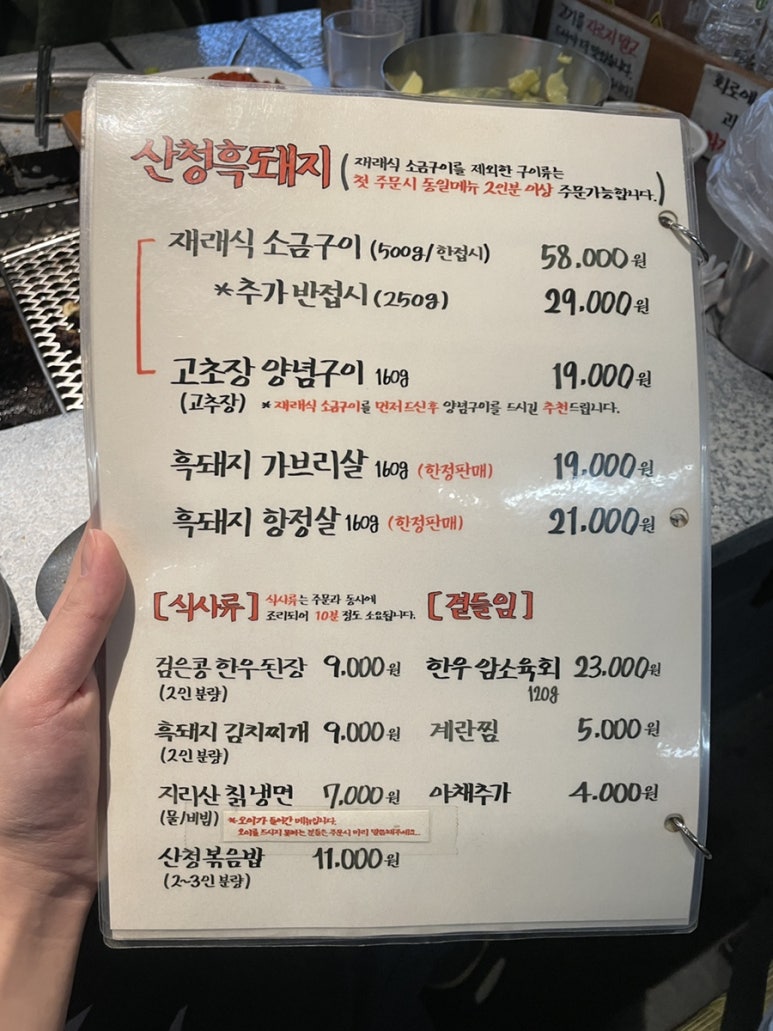 고기를 자르지 말고
화로에
산청흑돼지 (재래식 소금구이를 제외한 구이류는
첫 주문시 동일메뉴 2인분 이상 주문가능합니다.)
재래식 소금구이 (500g/한접시) 58.000원
*추가 반접시 (250g) 29,000원
고초장 양념구이 160g 19,000원
(고추장) *재래식 소금구이를 먼저드신후 양념구이를 드시길 추천드립니다.
흑돼지 가브리살 160g (한정판매) 19,000원
흑돼지 항정살 160g (한정판매) 21.000원
[식사류] 식사류는 주문과 동시에
조리되어 10분 정도 소요됩니다.
[곁들임]
검은콩 한우된장 9.000원 한우 암소육회 23.000원
(2인분량) 120g
흑돼지 김치찌개 9.000원 계란찜 5.000원
(2인분량)
지리산 칡냉면 7,000원 야채추가 4.000원
(물/비빔) *오이가 들어간 메뉴입니다.
오이를 드시지 못하는 분들은 주문시 미리 말씀해주세요...
산청볶음밥 11.000원
(2~3인분량)